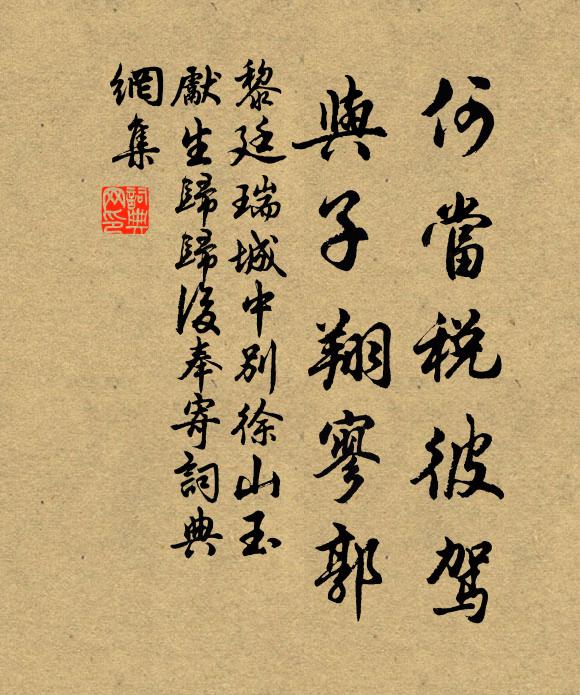 何當税彼駕
與子翔寥郭
黎廷瑞城中別徐山玉
獻生歸歸後奉寄詞典
網集
詞典网印